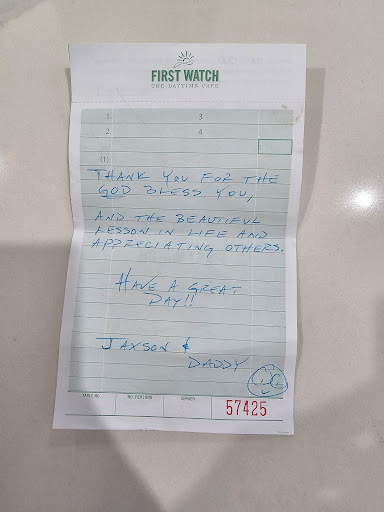 FIRST WATCH
THE DAYTIME CAFE
1 3
2 4
(1)
THANK YOU FOR THE
GOD BLESS YOU,
AND THE BEAUTIFUL
LESSON IN LIFE AND
APPRECIATING OTHERS.
HAVE A GREAT
DAY!!
JAXSON &
DADDY
TABLE NO. NO. PERSONS SERVER
57425